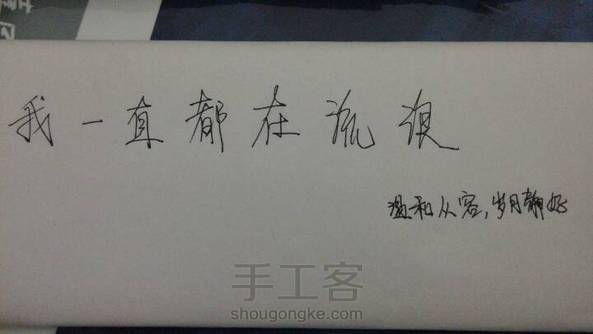 我一直都在流浪
温和从容,岁月静好
手工客
shougongke.com